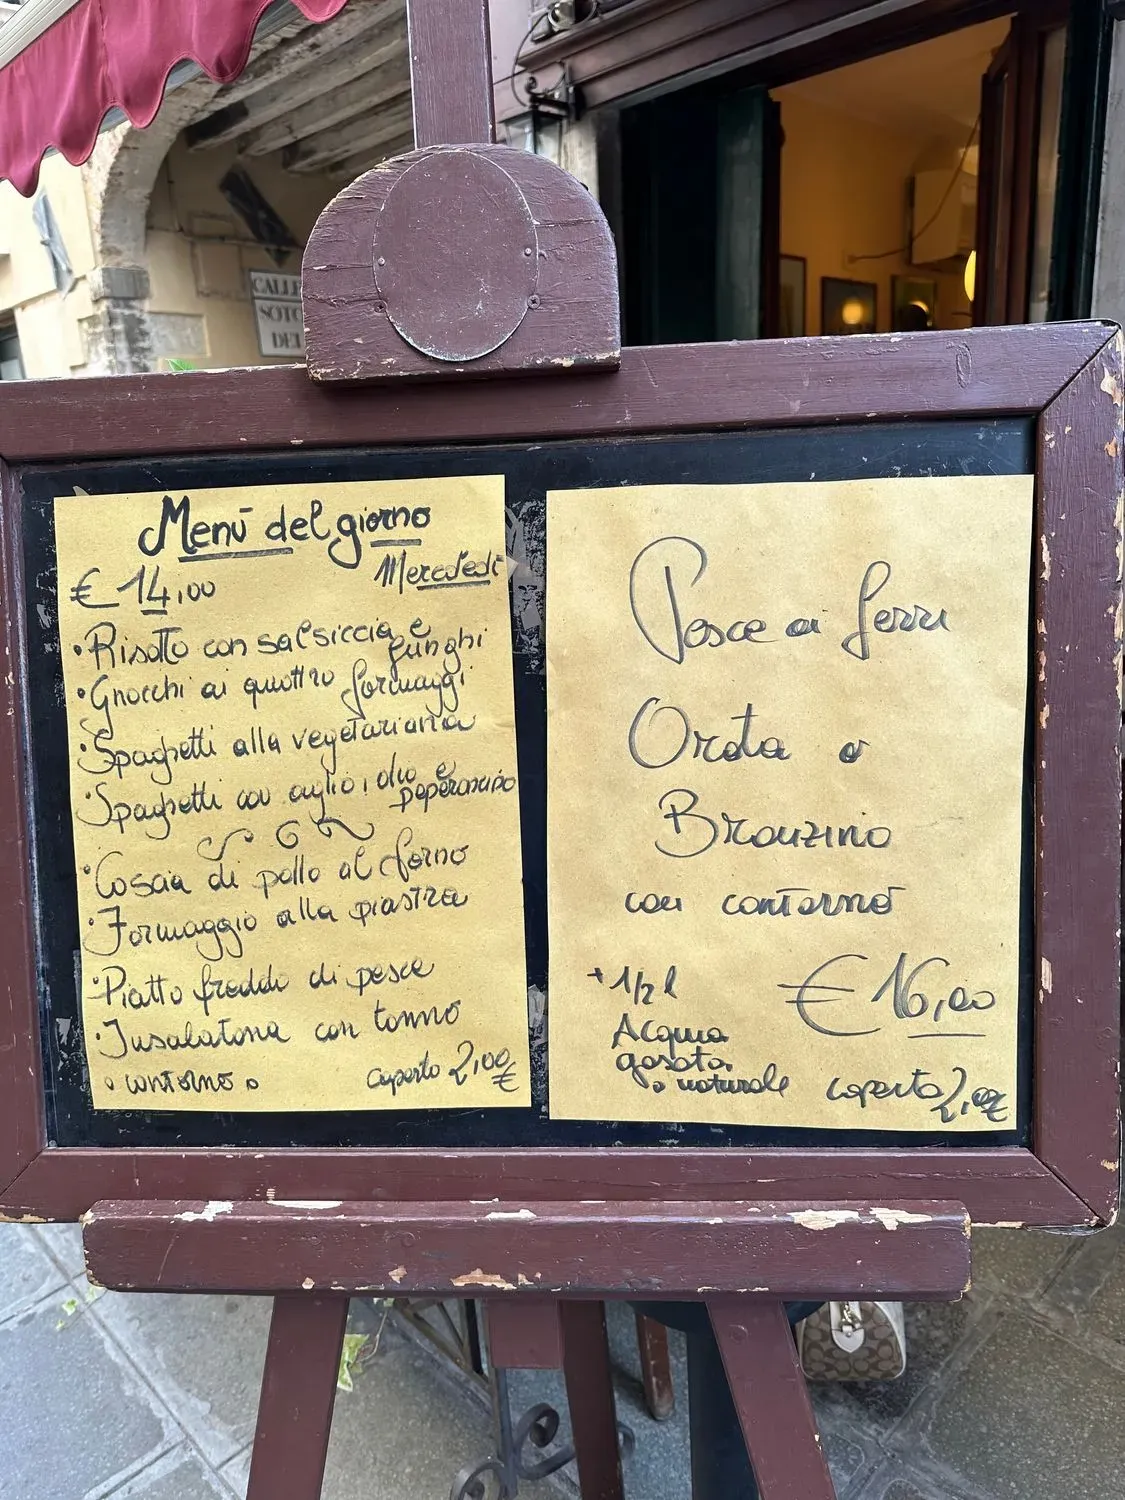 CALLE
SOTO
DEI
Menù del giorno
Mercoledì
€ 14,00
• Risotto con salsiccia e
funghi
• Gnocchi ai quattro formaggi
• Spaghetti alla vegetariana
• Spaghetti con aglio, olio e
peperoncino
• Coscia di pollo al forno
• Formaggio alla piastra
• Piatto freddo di pesce
• Insalatona con tonno
o contorno o
coperto 2,00
€
Pesce ai ferri
Orata o
Branzino
con contorno
+ 1/2 l
€ 16,00
Acqua
gasata
o naturale
coperto 2,00€